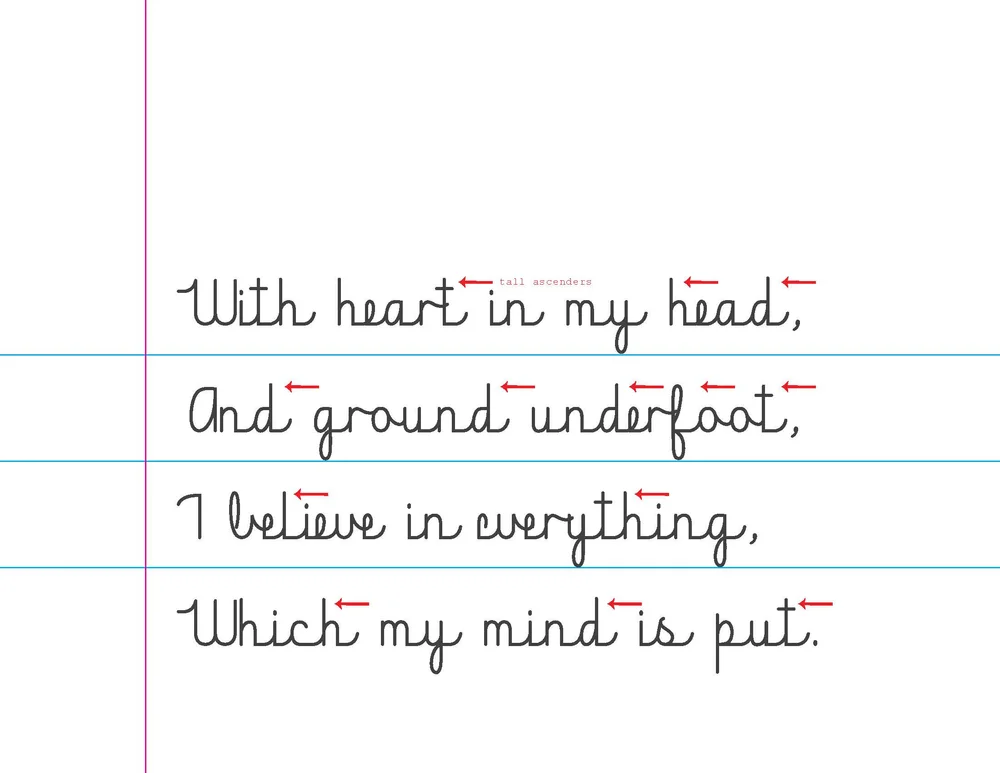 With heart in my head,
tall ascenders
And ground underfoot,
I believe in everything,
Which my mind is put.